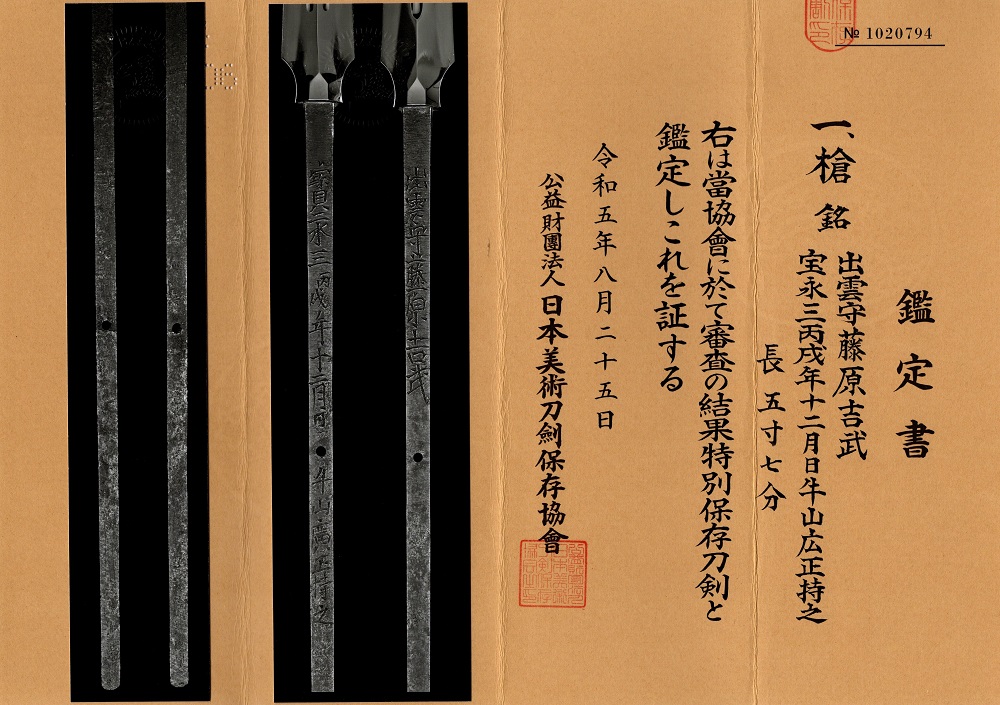 № 1020794
鑑定書
一、槍 銘 出雲守藤原吉武
宝永三丙戌年十二月日牛山広正持之
長 五寸七分
右は當協會に於て審査の結果特別保存刀剣と
鑑定しこれを証する
令和五年八月二十五日
公益財團法人 日本美術刀劍保存協會
出雲守藤原吉武
寳永三丙戌年十二月日 牛山廣正持之